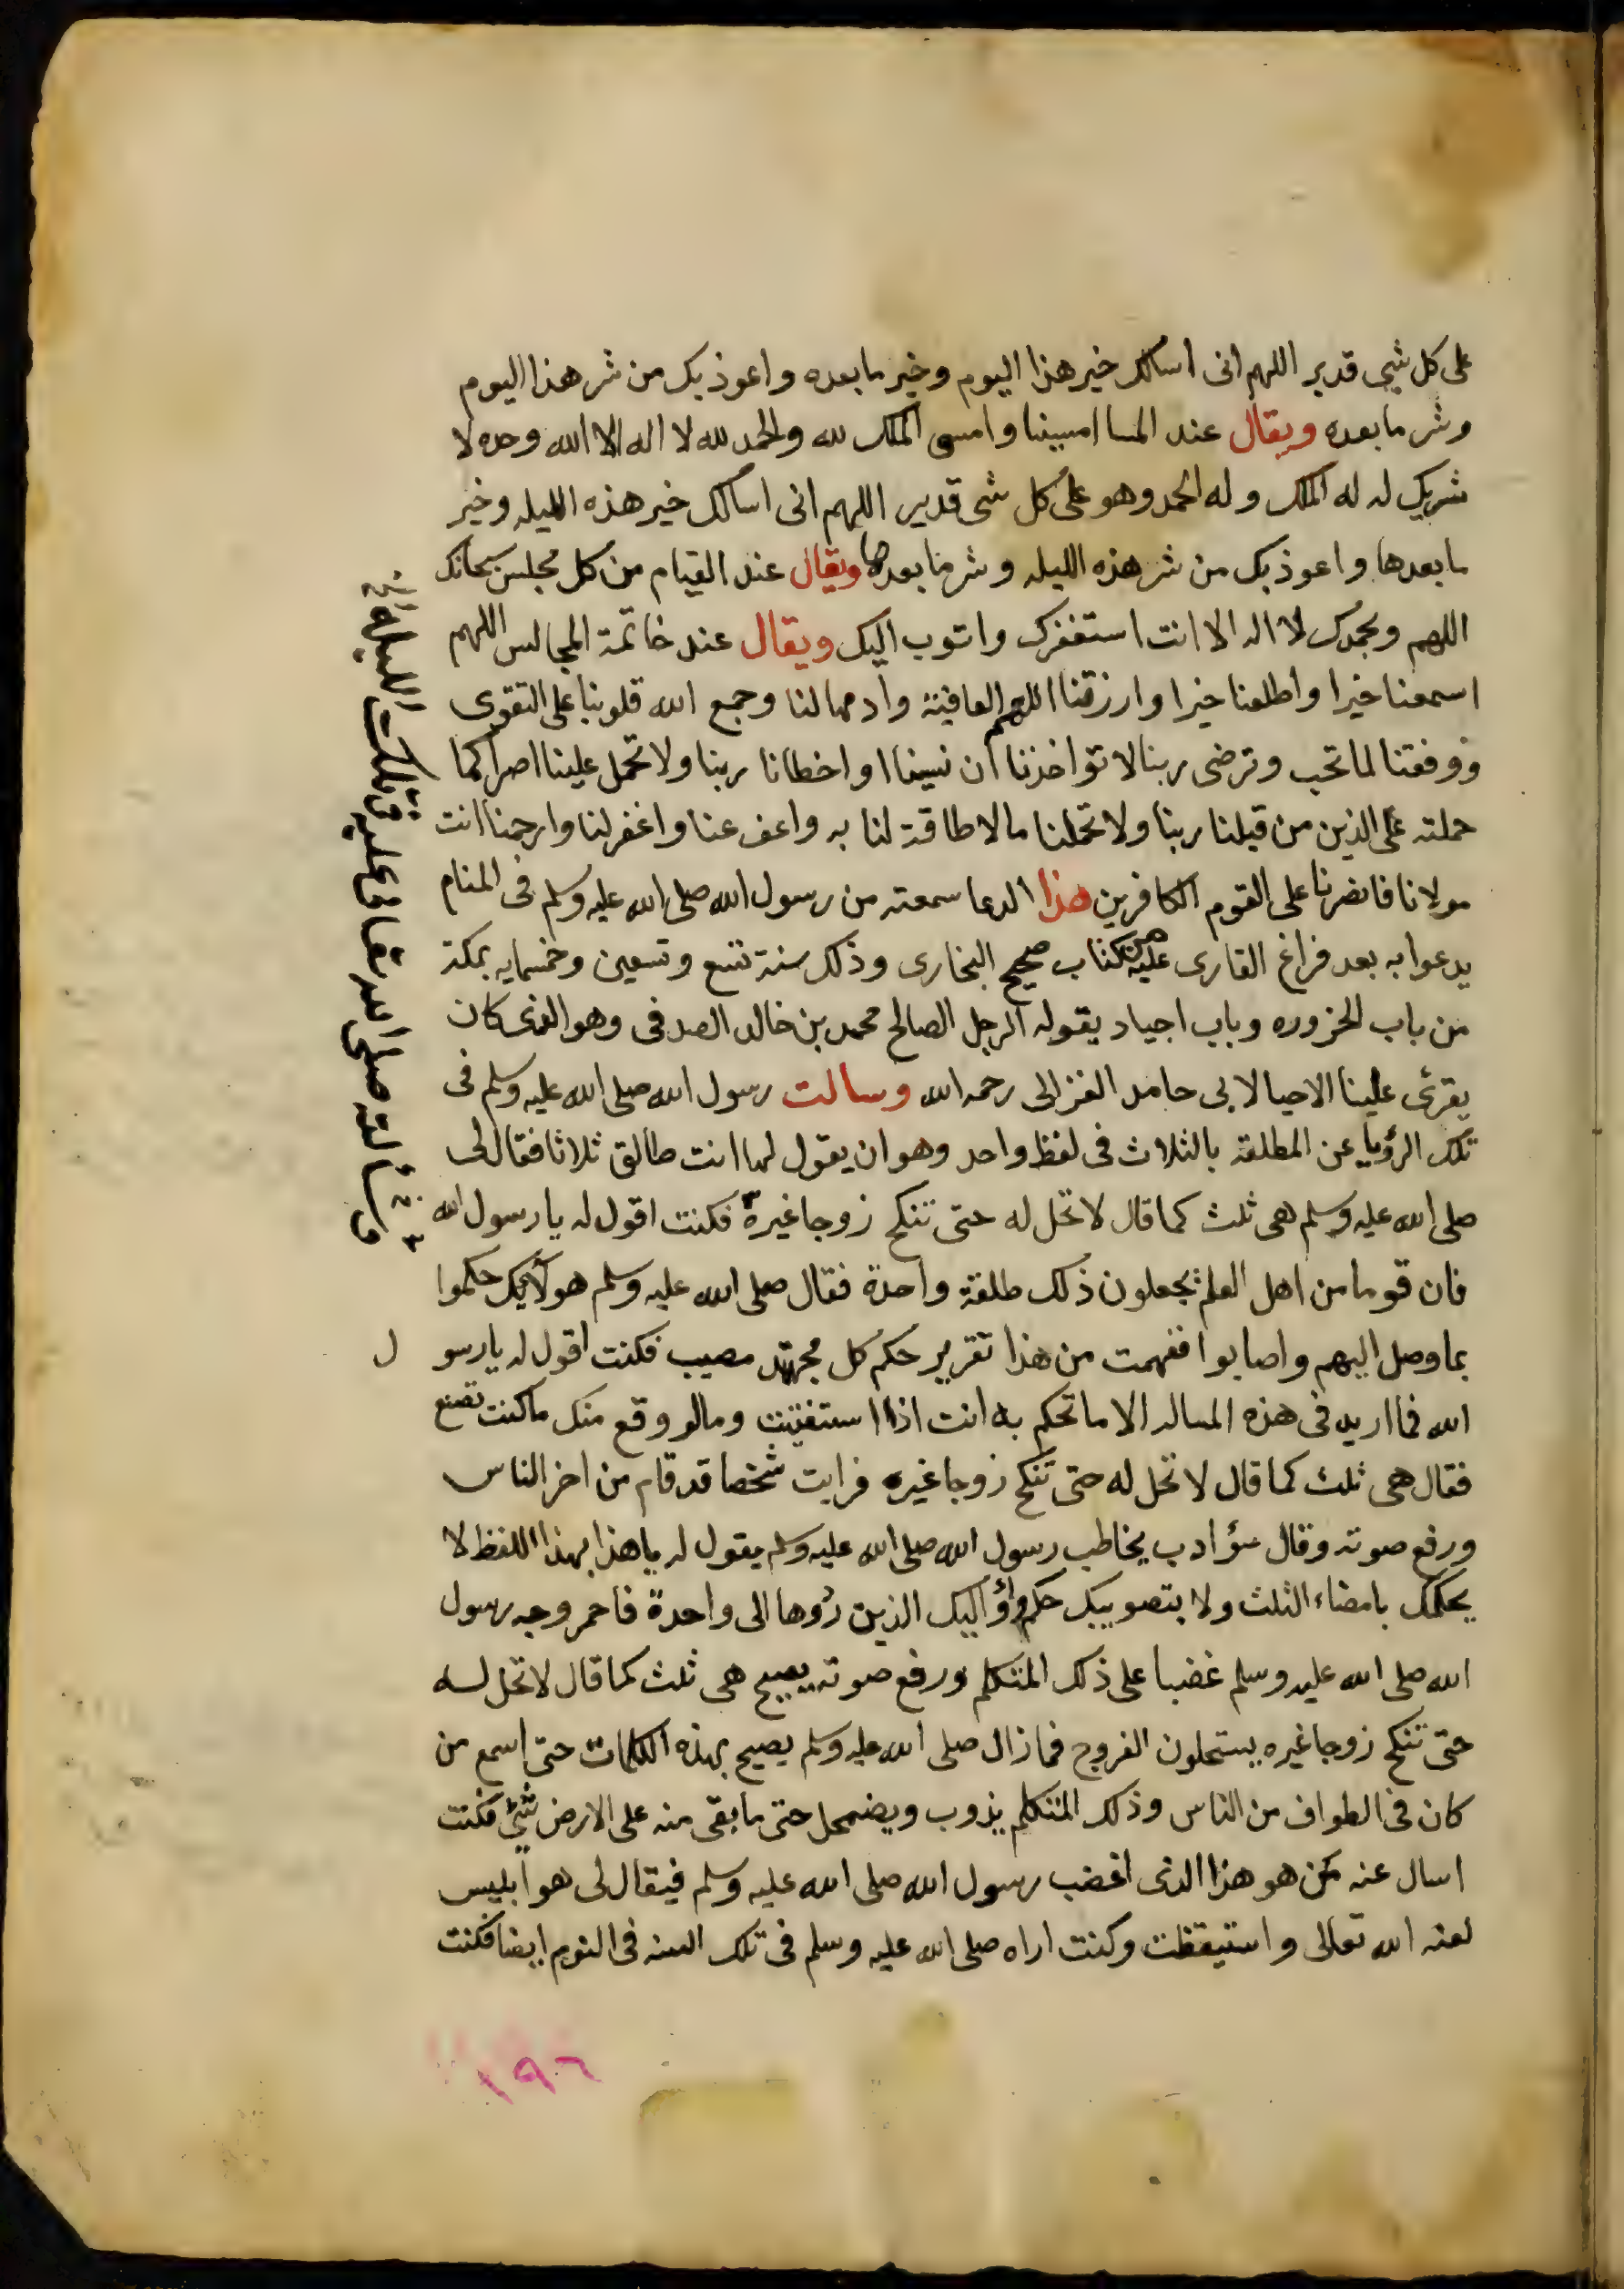 على كل شيى قدير اللهم انى اسالك خير هذا اليوم وخير ما بعده واعوذ بك من شر هذا اليوم
وشر ما بعده ويقال عند المسا امسينا وامسى الملك لله والحمد لله لا اله الا الله وحده لا
شريك له له الملك وله الحمد وهو على كل شى قدير اللهم انى اسالك خير هذه الليله وخير
ما بعدها واعوذ بك من شر هذه الليله وشر ما بعدها ويقال عند القيام من كل مجلس سبحانك
اللهم وبحمدك لا اله الا انت استغفرك واتوب اليك ويقال عند خاتمة المجالس اللهم
اسمعنا خيرا واطلعنا خيرا وارزقنا اللهم العافية وادمها لنا وجمع الله قلوبنا على التقوى
ووفقنا لما تحب وترضى ربنا لا تؤاخذنا ان نسينا او اخطانا ربنا ولا تحمل علينا اصرا كما
حملته على الذين من قبلنا ربنا ولا تحملنا ما لا طاقة لنا به واعف عنا واغفر لنا وارحمنا انت
مولانا فانصرنا على القوم الكافرين هذا الدعا سمعته من رسول الله صلى الله عليه وسلم فى المنام
يدعوا به بعد فراغ القارى عليه من كتاب صحيح البخارى وذلك سنة تسع وتسعين وخمسمايه بمكة
من باب الحزوره وباب اجياد يقوله الرجل الصالح محمد بن خالد الصدفى وهو الذى كان
يقرئ علينا الاحيا لابى حامد الغزالى رحمه الله وسالت رسول الله صلى الله عليه وسلم فى
تلك الرؤيا عن المطلقة بالثلاث فى لفظ واحد وهو ان يقول لها انت طالق ثلاثا فقال لى
صلى الله عليه وسلم هى ثلث كما قال لا تحل له حتى تنكح زوجا غيره فكنت اقول له يا رسول الله
فان قوما من اهل العلم يجعلون ذلك طلقة واحدة فقال صلى الله عليه وسلم هو لآئك حكموا
بما وصل اليهم واصابوا ففهمت من هذا تقرير حكم كل مجتهد مصيب فكنت اقول له يا رسو ل
الله فما اريد فى هذه المساله الا ما تحكم به انت اذا استفتيت ومالو وقع منك ما كنت تصنع
فقال هى ثلث كما قال لا تحل له حتى تنكح زوجا غيره فرايت شخصا قد قام من اخر الناس
ورفع صوته وقال سؤ ادب يخاطب رسول الله صلى الله عليه وسلم يقول له يا هذا بهذا اللفظ لا
يحكمك بامضاء الثلث ولا بتصويبك حكم اؤليك الذين ردوها الى واحدة فاحمر وجه رسول
الله صلى الله عليه وسلم غضبا على ذلك المتكلم ورفع صوته يصيح هى ثلث كما قال لا تحل له
حتى تنكح زوجا غيره يستحلون الفروج فما زال صلى الله عليه وسلم يصيح بهذه الكلمات حتى اسمع من
كان فى الطواف من الناس وذلك المتكلم يذوب ويضمحل حتى ما بقى منه على الارض شئ فكنت
اسال عنه من هو هذا الذى اغضب رسول الله صلى الله عليه وسلم فيقال لى هو ابليس
لعنه الله تعالى واستيقظت وكنت اراه صلى الله عليه وسلم فى تلك السنه فى النوم ايضا فكنت
١٩٦